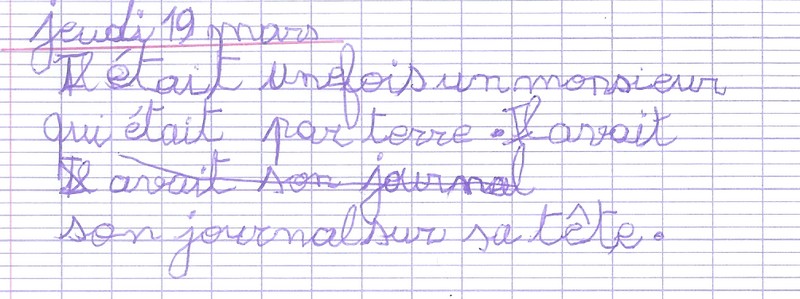 jeudi 19 mars
Il était unefois un monsieur
qui était par terre. Il avait
Il avait son journal
son journal sur sa tête.